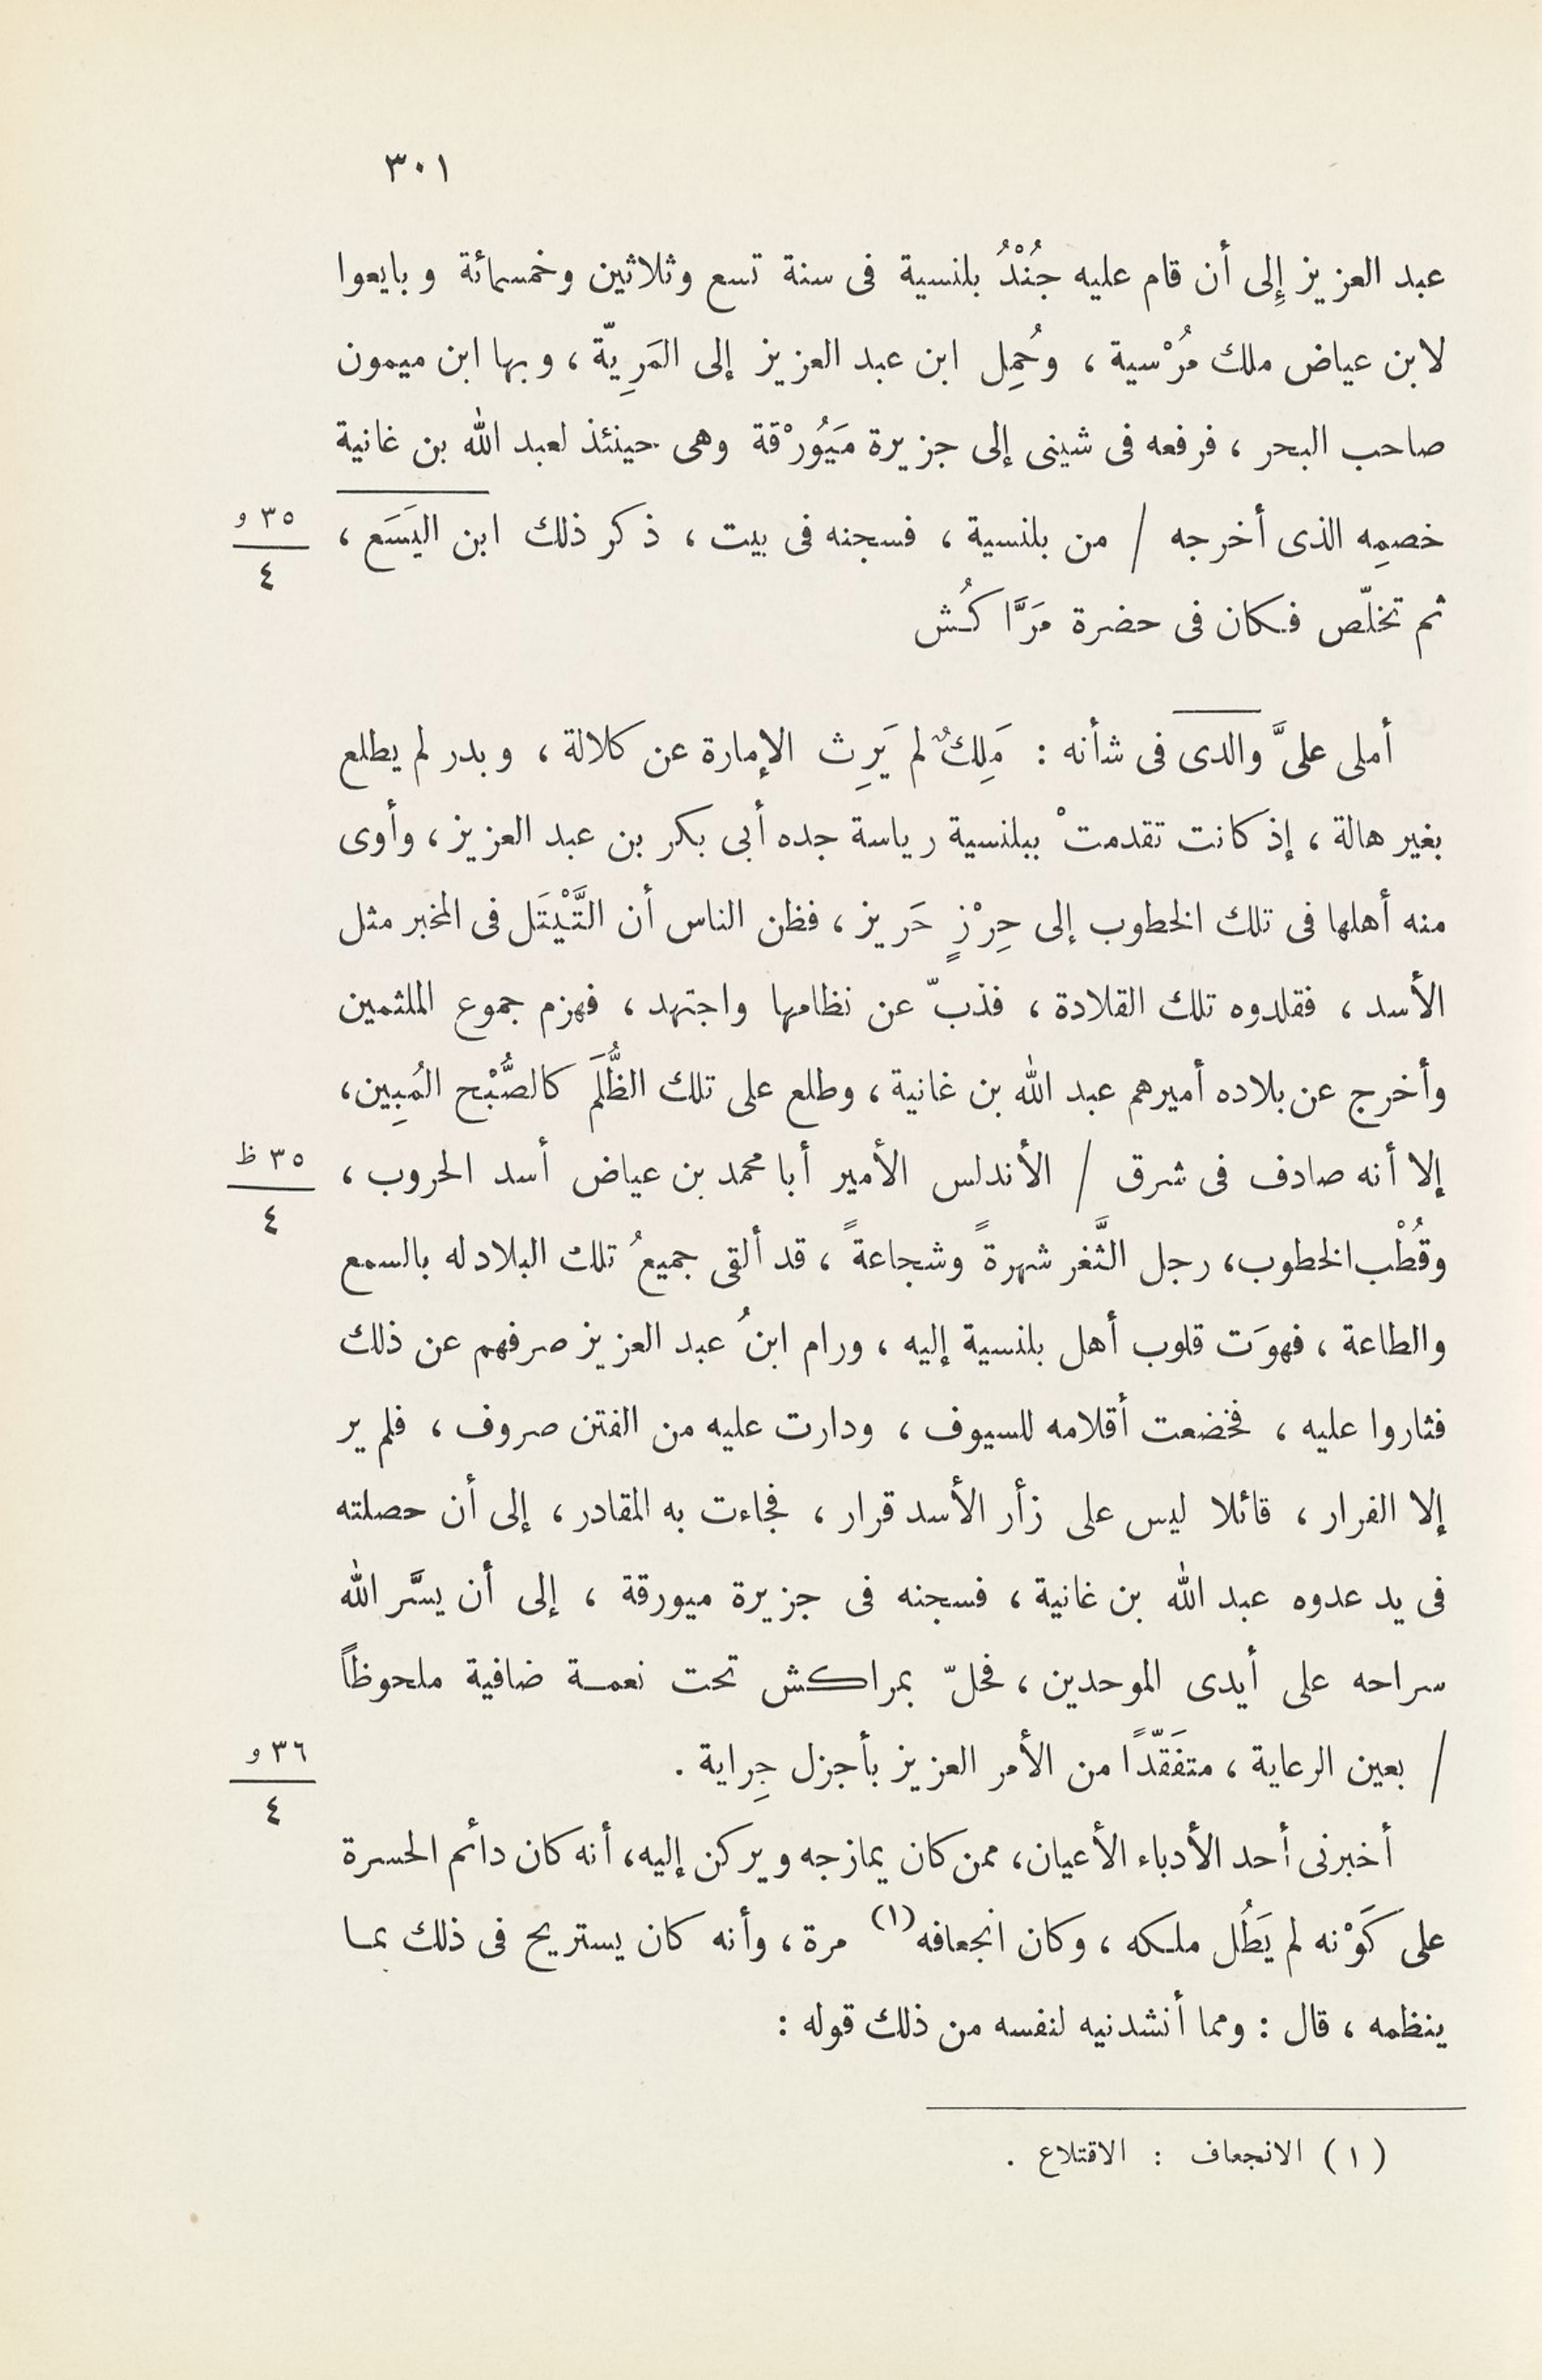 ٣٠١
عبد العزيز إِلى أن قام عليه جُنْدُ بلنسية فى سنة تسع وثلاثين وخمسمائة وبايعوا
لابن عياض ملك مُرْسية ، وحُمِل ابن عبد العزيز إلى المَرِيّة ، وبها ابن ميمون
صاحب البحر ، فرفعه فى شينى إلى جزيرة مَيَوُرْقة وهى حينئذ لعبد الله بن غانية
خصمِه الذى أخرجه / من بلنسية ، فسجنه فى بيت ، ذكر ذلك ابن اليَسَع ،
٣٥ و
٤
ثم تخلّص فكان فى حضرة مَرَّاكُش
أملى علىَّ والدى فى شأنه : مَلِكٌ لم يَرِث الإمارة عن كلالة ، وبدر لم يطلع
بغير هالة ، إذ كانت تقدمتْ ببلنسية رياسة جده أبى بكر بن عبد العزيز ، وأوى
منه أهلها فى تلك الخطوب إلى حِرْزٍ حَريز ، فظن الناس أن التَّيْتَل فى المخبر مثل
الأسد ، فقلدوه تلك القلادة ، فذبّ عن نظامها واجتهد ، فهزم جموع الملثمين
وأخرج عن بلاده أميرهم عبد الله بن غانية ، وطلع على تلك الظُّلَم كالصُّبْح المُبِين ،
إلا أنه صادف فى شرق / الأندلس الأمير أبا محمد بن عياض أسد الحروب ،
٣٥ ظ
٤
وقُطْب الخطوب ، رجل الثَّغر شهرةً وشجاعةً ، قد ألقى جميعُ تلك البلاد له بالسمع
والطاعة ، فهوَت قلوب أهل بلنسية إليه ، ورام ابنُ عبد العزيز صرفهم عن ذلك
فثاروا عليه ، فخضعت أقلامه للسيوف ، ودارت عليه من الفتن صروف ، فلم ير
إلا الفرار ، قائلا ليس على زأر الأسد قرار ، فجاءت به المقادر ، إلى أن حصلته
فى يد عدوه عبد الله بن غانية ، فسجنه فى جزيرة ميورقة ، إلى أن يسَّر الله
سراحه على أيدى الموحدين ، فحلّ بمراكش تحت نعمة ضافية ملحوظاً
/ بعين الرعاية ، متفَقّدًا من الأمر العزيز بأجزل جِراية .
٣٦ و
٤
أخبرنى أحد الأدباء الأعيان ، ممن كان يمازجه ويركن إليه ، أنه كان دائم الحسرة
على كَوْنه لم يَطُل ملكه ، وكان انجعافه (١) مرة ، وأنه كان يستريح فى ذلك بما
ينظمه ، قال : ومما أنشدنيه لنفسه من ذلك قوله :
(١) الانجعاف : الاقتلاع .